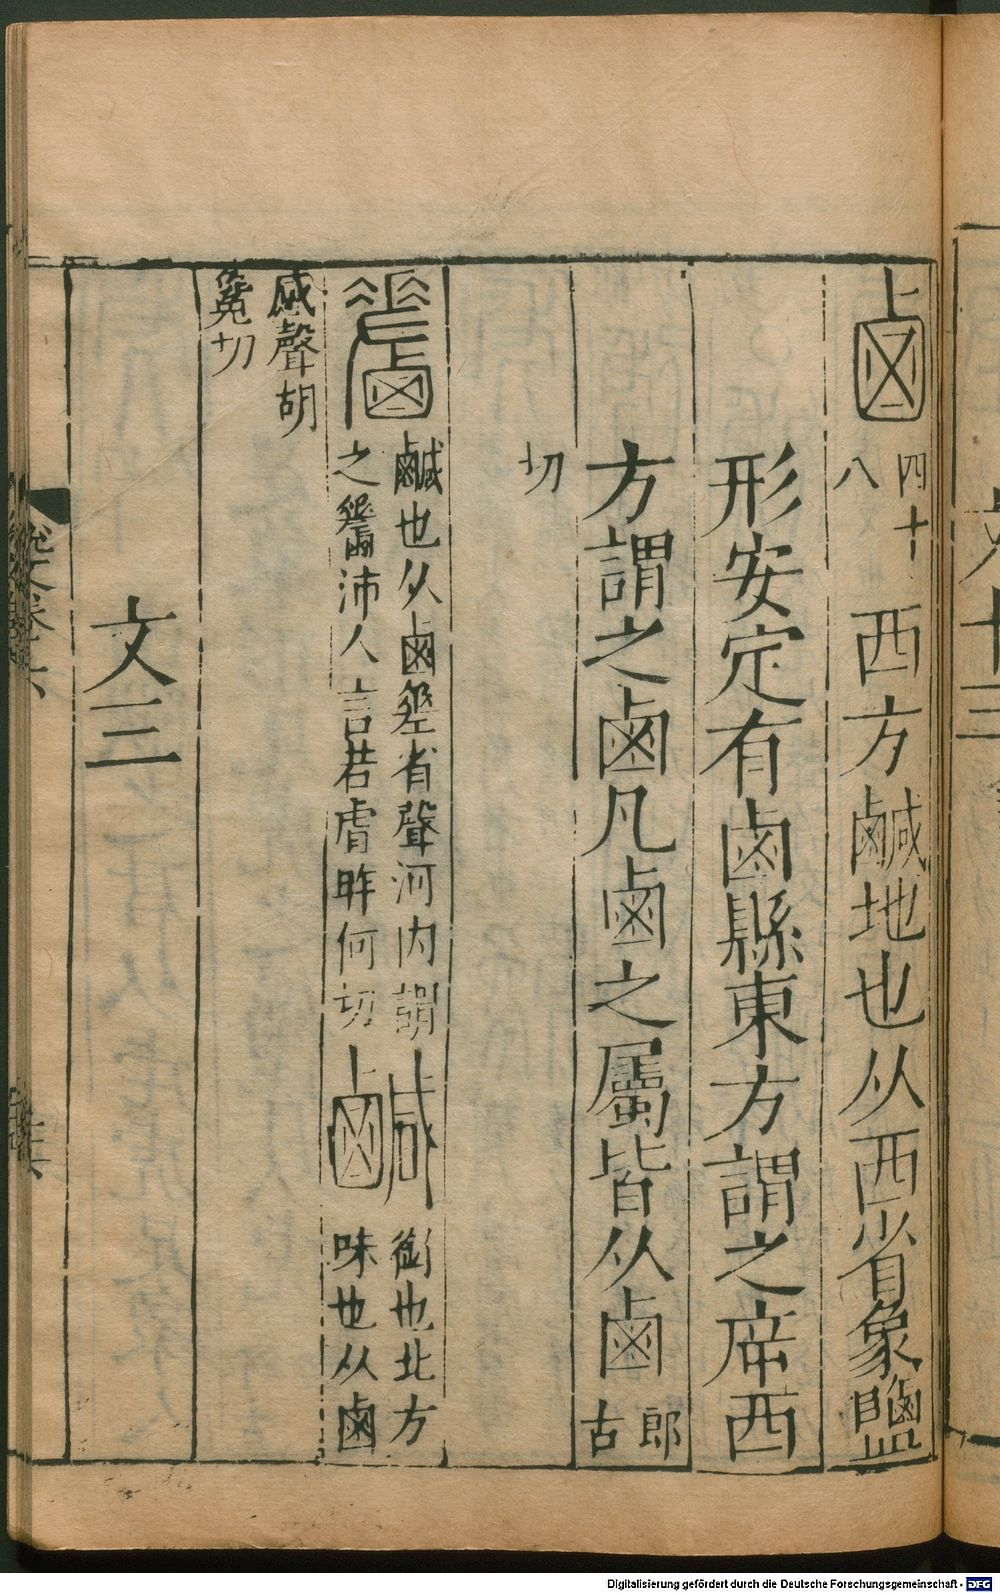 鹵 四十八 西方鹹地也从西省象鹽
形安定有鹵縣東方謂之㡿西
方謂之鹵凡鹵之屬皆从鹵 郎古
切
䴾 鹹也从鹵𢀩省聲河內謂
之䴾沛人言若虘昨何切
鹹 銜也北方
味也从鹵
咸聲胡
毚切
文三
Digitalisierung gefördert durch die Deutsche Forschungsgemeinschaft - DFG